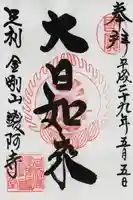 奉拝
平成二十九年五月五日
大日如来
足利 金剛山鑁阿寺